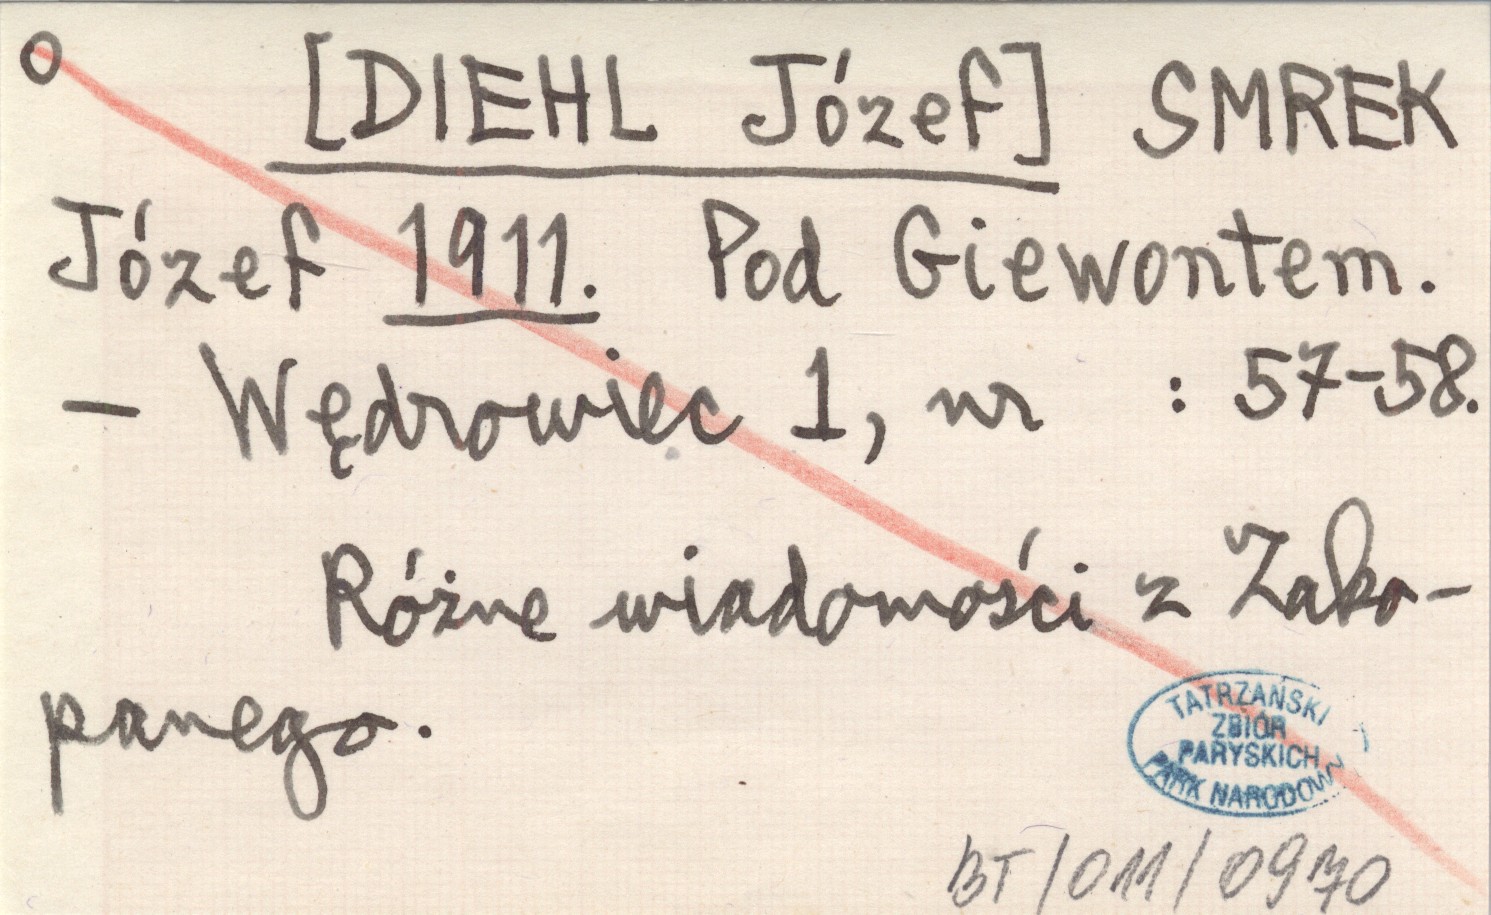 O [DIEHL Józef] SMREK
Józef 1911. Pod Giewontem.
– Wędrowiec 1, nr : 57–58.
Różne wiadomości z Zako-
panego.
TATRZAŃSKI
ZBIÓR
PARYSKICH
PARK NARODOWY
BT/011/0970